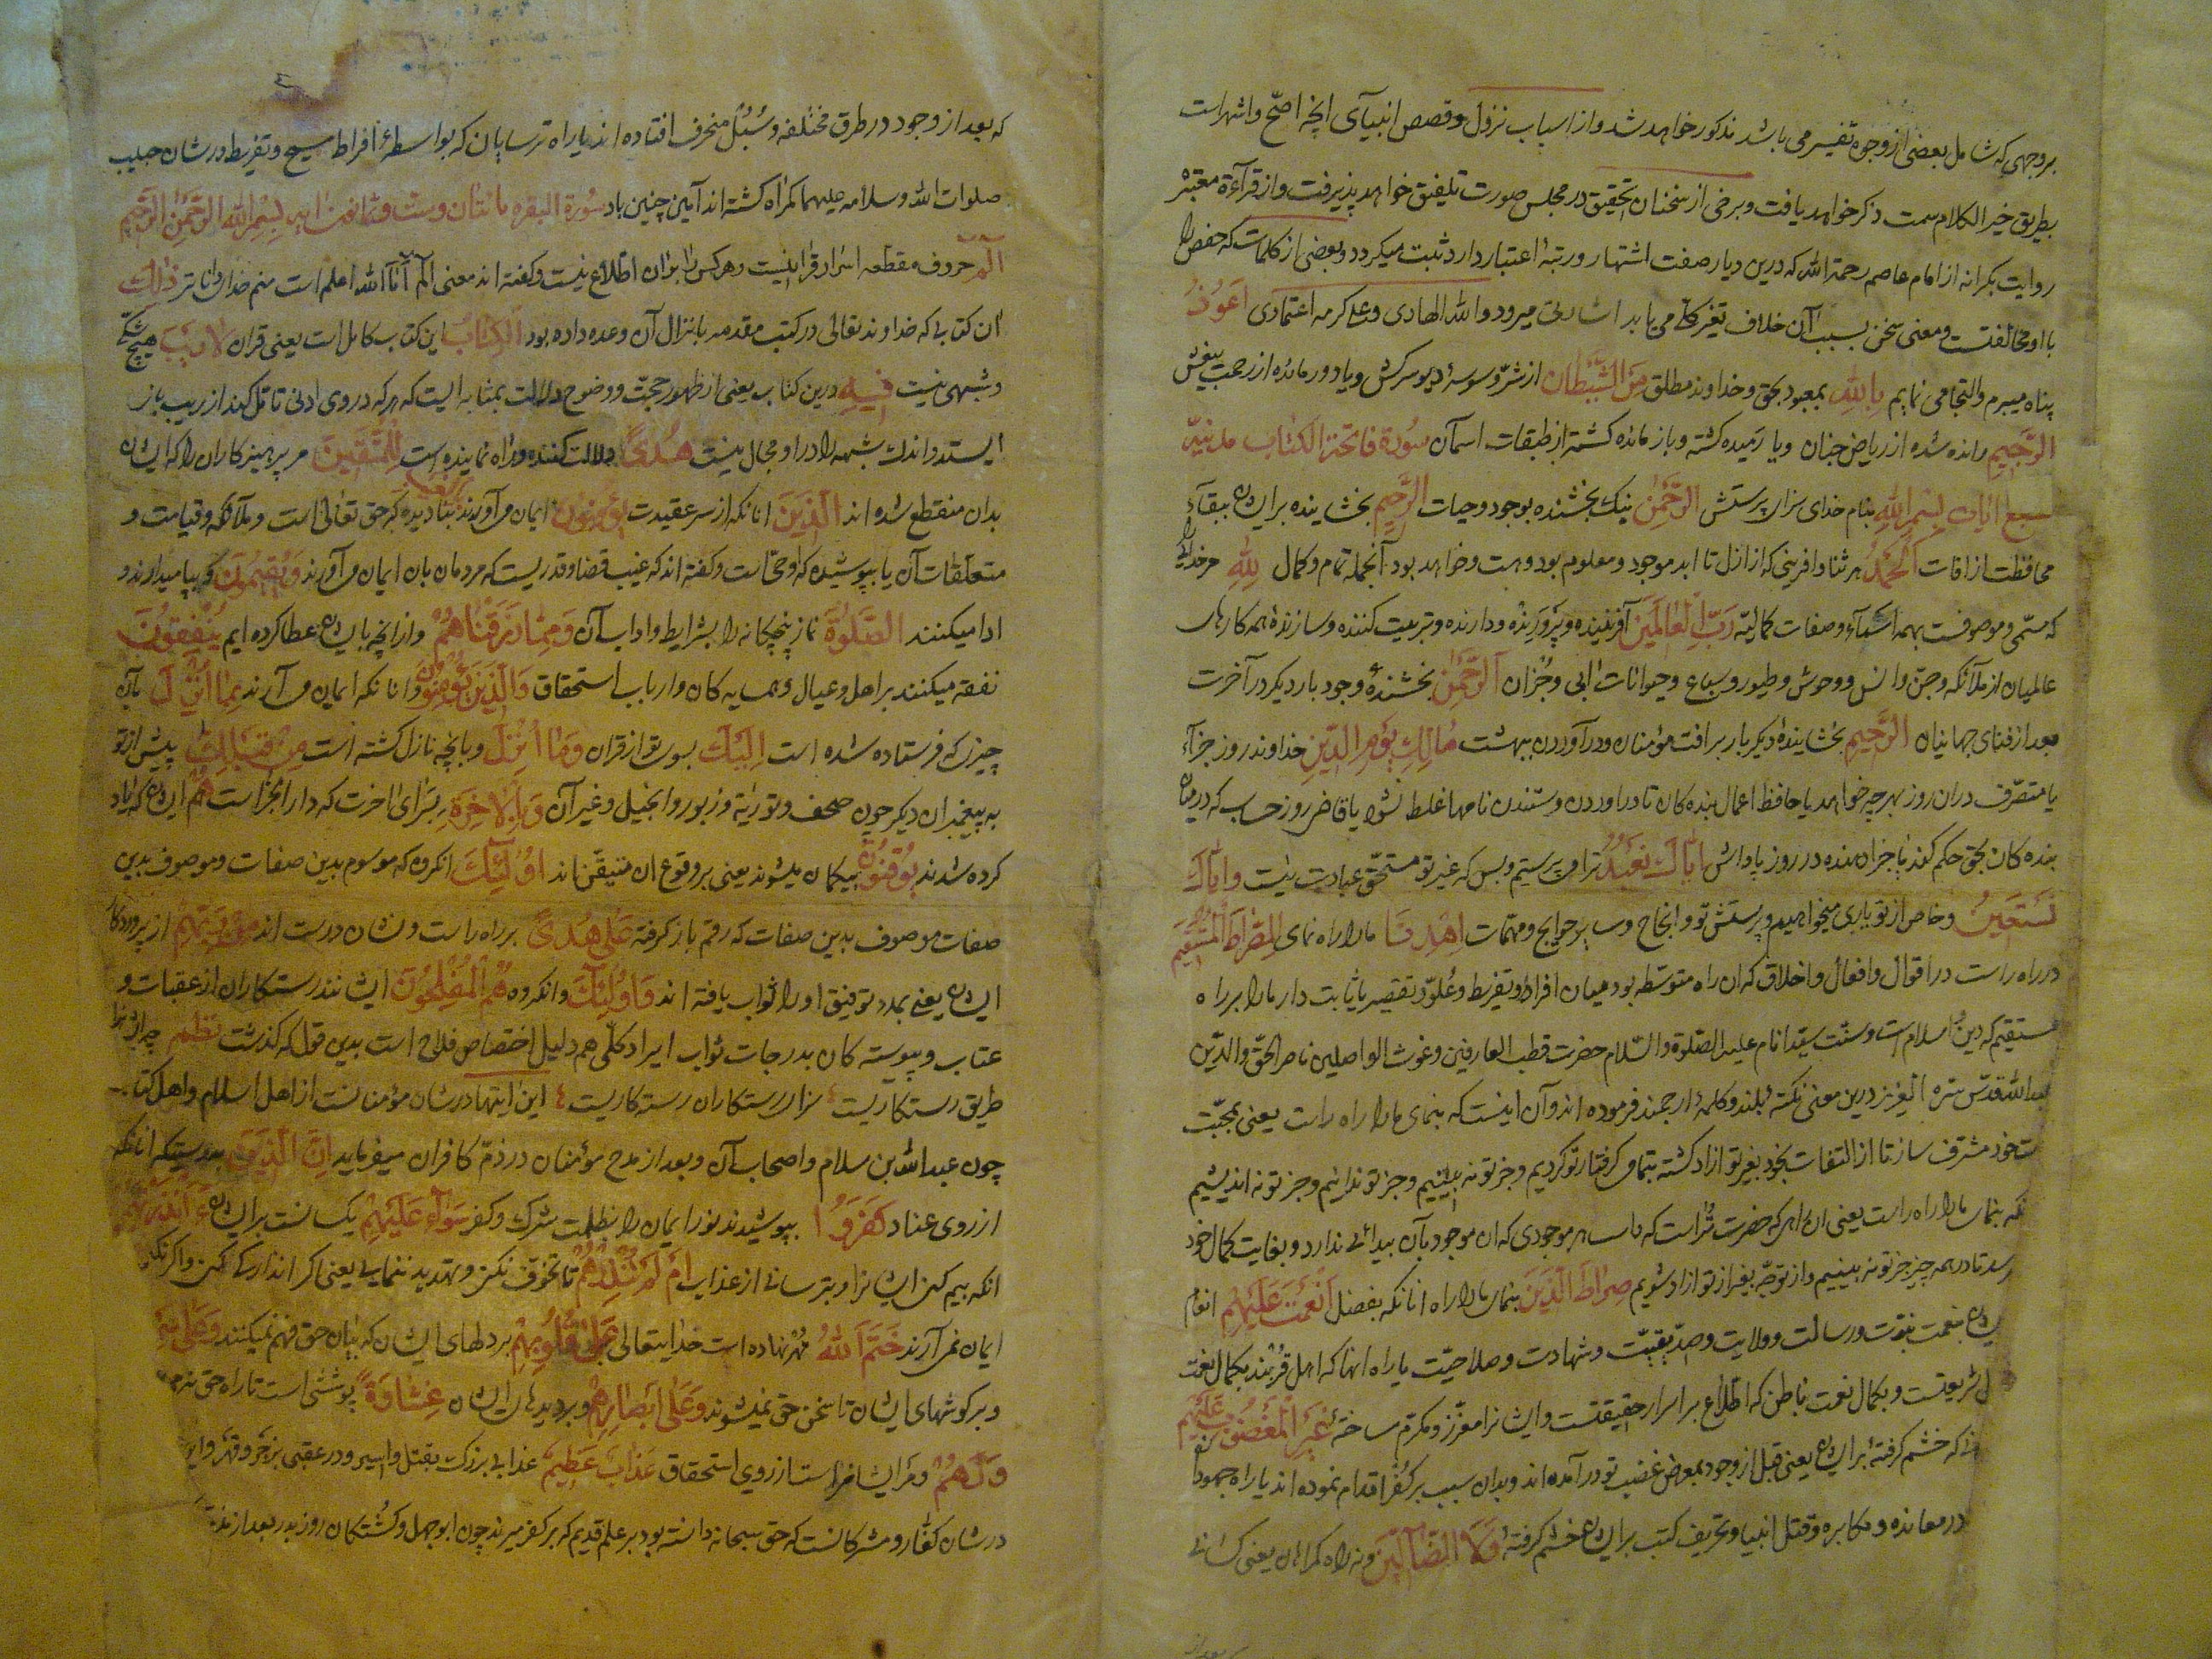 بروجهی که شامل بعضی از وجوه تفسیر می باشد مذکور خواهد شد و از اسباب نزول و قصص انبیآی آنچه اصحّ و اشهر است
بطریق خیر الکلام سمت ذکر خواهد یافت و برخی از سخنان تحقیق در مجلس صورت تلفیق خواهد پذیرفت و از قرآءة معتبر
روایت بکر از امام عاصم رحمة الله که درین دیار صفت اشتهار و رتبۀ اعتبار دارد ثبت میگردد و بعضی از کلمات که حفص را
با او مخالفتست و معنی سخن بسبب آن خلاف تغیر کلی می یابد اشارتی میرود والله الهادی وعلی کرمه اعتمادی اَعُوذُ
پناه میبرم و التجا می نمایم بِاللّهِ بمعبود بحق و خداوند مطلق مِنَ الشَّیْطانِ از شرّ و وسوسۀ دیو سرکش و یا دور مانده از رحمت
الرَّجیمِ رانده شده از ریاض جنان و یا رمیده گشته و باز مانده گشته از طبقات آسمان سورة فاتحة الکتاب مدنیة
سبع ایات بسم الله بنام خدای سزای پرستش الرَّحْمٰنِ نیک بخشنده بوجود و حیات الرَّحیمِ بخشاینده برایشان ببقاء
محافظت از افات اَلْحَمْدُ هر ثنا و آفرینی که از ازل تا ابد موجود و معلوم بود و هست و خواهد بود آنجمله تمام و کمال لِلّٰهِ مر خدایی
که مسمّی و موصوفست بهمه اسمآء و صفات کمالیّه رَبِّ الْعالَمینَ آفریننده و پرورنده و دارنده و تربیت کننده و سازندۀ همه کارهای
عالمیان از ملائکه و جنّ و انس و وحوش و طیور و سباع و حیوانات آبی و جُز آن الرَّحْمٰنِ بخشندۀ وجود بار دیگر در آخرت
بعد از فنای جهانیان الرَّحیمِ بخشایندۀ دیگر بار بر افت مؤمنان و در آوردن ببهشت مالِكِ یَوْمِ الدّینِ خداوند روز جزآء
یا متصرّف در آن روز بهرچه خواهد یا حافظ اعمال بنده کان تا در آوردن و ستدن نامها غلط نشود یا قاضی روز حساب که در میان
بنده کان بحق حکم کند یا جزا دهنده در روز پاداش اِیّاكَ نَعْبُدُ ترا می پرستیم و بس که غیر تو مستحقّ عبادت نیست وَاِیّاكَ
نَسْتَعینُ و خاص از تو یاری میخواهیم و پرستش تو و انجاح و سایر حوایج و مهمّات اِهْدِنَا ما را راه نمای الصِّراطَ الْمُسْتَقیمَ
در راه راست در اقوال و افعال و اخلاق که آن راه متوسّطه بود میان افراط و تفریط و غلوّ و تقصیر یا ثابت دار ما را بر راه
مستقیم که دین اسلام است و سنّت سیّد انام علیه الصّلوة والسّلام حضرت قطب العارفین و غوث الواصلین ناصر الحقّ والدّین
عبدالله قدّس سرّه العزیز درین معنی نکتۀ بلند و کلمۀ ارجمند فرموده اند و آن اینست که بنمای ما را راه راست یعنی بمحبّت
خود مشرّف ساز تا از التفات بخود بغیر تو آزاد گشته بتمامی گرفتار تو گردیم و جز تو نه بینیم و جز تو ندانیم و جز تو نه اندیشیم
نکه بنمای ما را راه راست یعنی آن راهی که حضرت تُراست که با هر موجودی که آن موجود بآن پیدائی ندارد و بغایت کمال خود
رسد تا در همه چیز جز تو نه بینیم و از توجّه بغیر از تو آزاد شویم صِراطَ الَّذینَ بنمای ما را راه آنانکه بفضل اَنْعَمْتَ عَلَیْهِمْ انعام
ایشان نعمت نبوّت و رسالت و ولایت و صدّیقیّت و شهادت و صلاحیّت یا راه آنها که اهل قربتند بکمال نعمت
شریعتست و بکمال نعمت باطن که اطّلاع بر اسرار حقیقتست و ایشانرا معزّز و مکرّم ساختۀ غَیْرِ الْمَغْضُوبِ عَلَیْهِمْ
که خشم گرفتۀ بر ایشان یعنی قبل از وجود بمعرض غضب تو در آمده اند و بدان سبب بر کفر اقدام نموده اند یا راه جهودان
در معانده و مکابره و قتل انبیا و تحریف کتب بر ایشان خشم گرفتۀ وَلَا الضّآلّینَ و نه راه گمراهان یعنی کسانی
که بعد از وجود در طرق مختلفه و سُبُل منحرف افتاده اند یا راه ترسایان که بواسطۀ افراط مسیح و تفریط در شان حبیب
صلوات الله وسلامه علیهما گمراه گشته اند آمین چنین باد سورة البقره مائتان وست وثمانون ایه بسم الله الرحمن الرحیم
الٓمٓ حروف مقطعه اسرار قرآنیست و هر کس را بران اطّلاع نیست و گفته اند معنی الم آنا الله اعلم است منم خدای دانا تر ذٰلِكَ
آن کتابی که خداوند تعالی در کتب مقدمه بانزال آن وعده داده بود الْكِتابُ این کتاب کامل است یعنی قرآن لا رَیْبَ هیچ شکّی
و شبهی نیست فیهِ درین کتاب یعنی از ظهور حجّت و وضوح دلالت بمثابه ایست که هر که در وی ادنی تأمّل کند از ریب باز
ایستد و اندك شبهه را در او مجال نیست هُدًی دلالت کننده و راه نماینده است لِلْمُتَّقینَ مر پرهیز کاران را که ایشان
بدان منقطع شده اند الَّذینَ آنانکه از سر عقیدت یُؤْمِنُونَ ایمان می آورند بِالْغَیْبِ بنادیده که حق تعالی است و ملائکه و قیامت و
متعلّقات آن یا بپوشیده که وحی است و گفته اند که غیب قضا و قدریست که مردمان بان ایمان می آورند وَیُقیمُونَ و بپا میدارند و
ادا میکنند الصَّلٰوةَ نماز پنجگانه را بشرایط و اداب آن وَمِمّا رَزَقْناهُمْ و از انچه بایشان عطا کرده ایم یُنْفِقُونَ
نفقه میکنند بر اهل و عیال و همسایه کان و ارباب استحقاق وَالَّذینَ یُؤْمِنُونَ و آنانکه ایمان می آرند بِما اُنْزِلَ بآن
چیزی که فرستاده شده است اِلَیْكَ بسوی تو از قرآن وَما اُنْزِلَ و بانچه نازل گشته است مِنْ قَبْلِكَ پیش از تو
به پیغمبران دیگر چون صحف و توریة و زبور و انجیل و غیر آن وَبِالْاٰخِرَةِ بسرای آخرت که دار الجزاست هُمْ ایشان که یاد
کرده شدند یُوقِنُونَ بیگمان میشوند یعنی بر وقوع آن متیقّن اند اُولٰئِكَ آنگروه که موسوم بدین صفات و موصوف بدین
صفات موصوف بدین صفات که رقم باز گرفته عَلٰی هُدًی بر راه راست و نشان درست اند مِنْ رَبِّهِمْ از پروردگار
ایشان یعنی بمدد توفیق او راه ثواب یافته اند وَاُولٰئِكَ و آنگروه هُمُ الْمُفْلِحُونَ ایشانند رستکاران از عقبات و
عتاب و پیوسته کان بدرجات ثواب ایراد کلمۀ هم دلیل اختصاص فلاح است بدین قول که گذشت نظم
طریق رستکاریست سزای رستکاران رسته کاریست این آیتها در شان مؤمنانست از اهل اسلام و اهل کتاب
چون عبدالله بن سلام و اصحاب آن و بعد از مدح مؤمنان در ذمّ کافران میفرماید اِنَّ الَّذینَ بدرستیکه آنانکه
از روی عناد کَفَرُوا بپوشیدند نور ایمان را بظلمت شرك و کفر سَوآءٌ عَلَیْهِمْ یکسانست بر ایشان ءَاَنْذَرْتَهُمْ
آنکه بیم کنی ایشانرا و بترسانی از عذاب اَمْ لَمْ تُنْذِرْهُمْ تا تخوّف نکنی و تهدید ننمایی یعنی اگر انذار کنی و اگر نکنی
ایمان نمی آرند خَتَمَ اللّٰهُ مُهر نهاده است خدایتعالی عَلٰی قُلُوبِهِمْ بر دلهای ایشان که بان حق فهم نمیکنند وَعَلٰی سَمْعِهِمْ
و بر گوشهای ایشان تا سخن حق نمیشنوند وَعَلٰی اَبْصارِهِمْ و بر دیدهای ایشان غِشاوَةٌ پوششی است تا راه حق نبینند
وَلَهُمْ و مر ایشانراست از روی استحقاق عَذابٌ عَظیمٌ عذابی بزرگ بقتل و اسیر و در عقبی بزجر و قهر و این
در شان کفّار و مشرکانست که حق سبحانه دانسته بود بر علم قدیم که بر کفر میرند چون ابوجهل و کُشتکان روز بدر بعد از